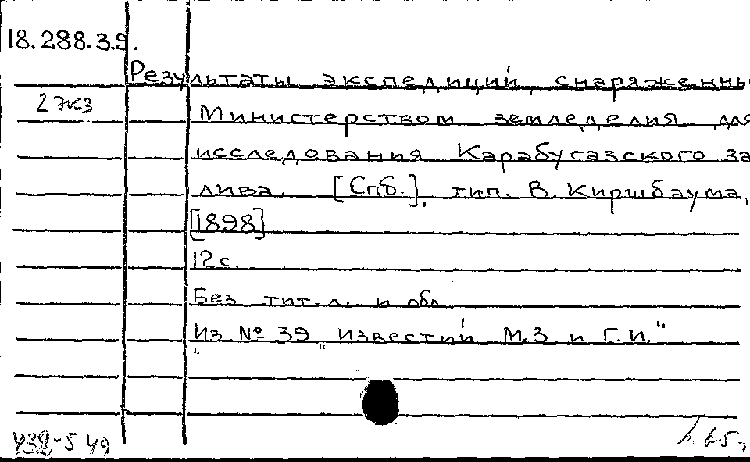 18.288.3.9.
Результаты экспедиций, снаряженны
2 экз
Министерством земледелия для
исследования Карабугазского за
лива. [Спб.], тип. В. Киршбаума,
[1898]
12с.
Без тит. л. и обл.
Из № 39 "Известий М.З. и Г.И."
438-5 49